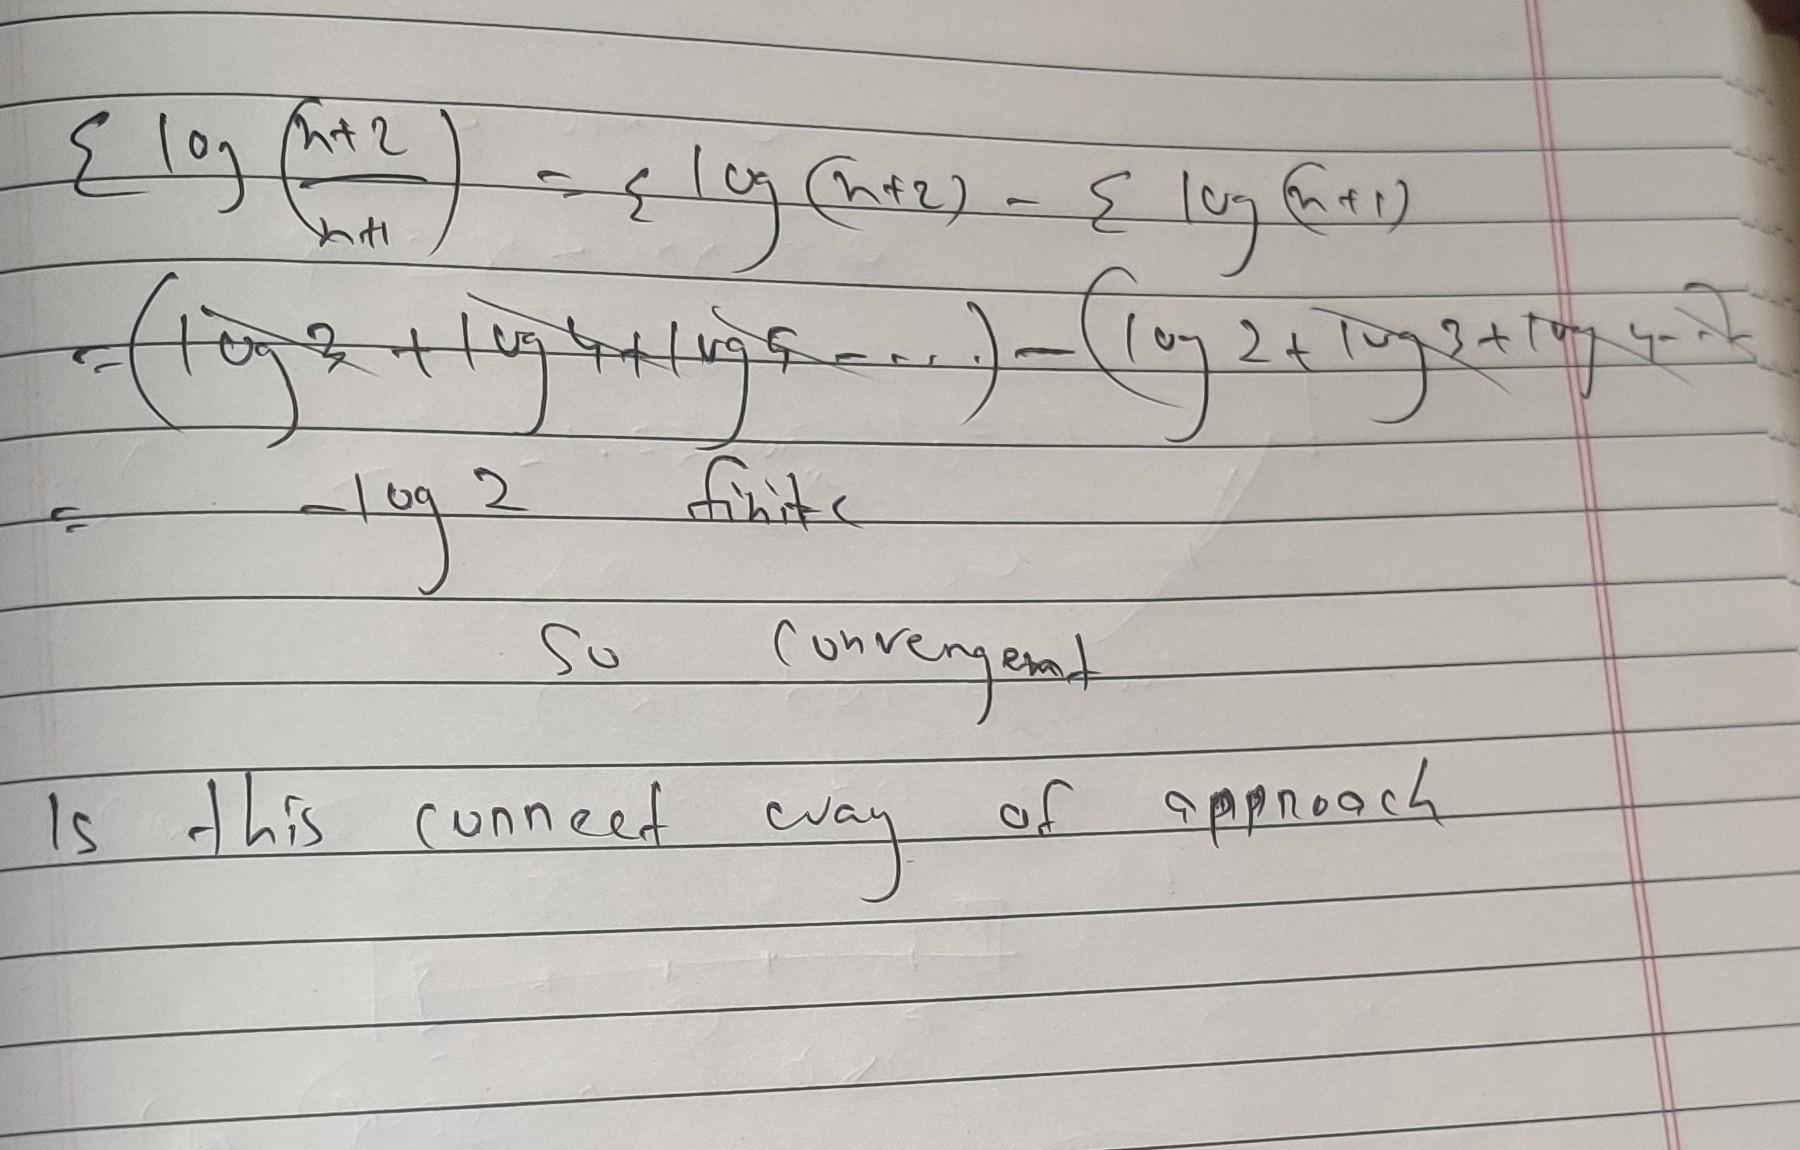 Σ log (n+2/n+1) = Σ log (n+2) - Σ log (n+1)
= (log 3 + log 4 + log 5 - - - .) - (log 2 + log 3 + log 4 - - )
= -log 2 finite
So convengent
Is this connect way of appnoach